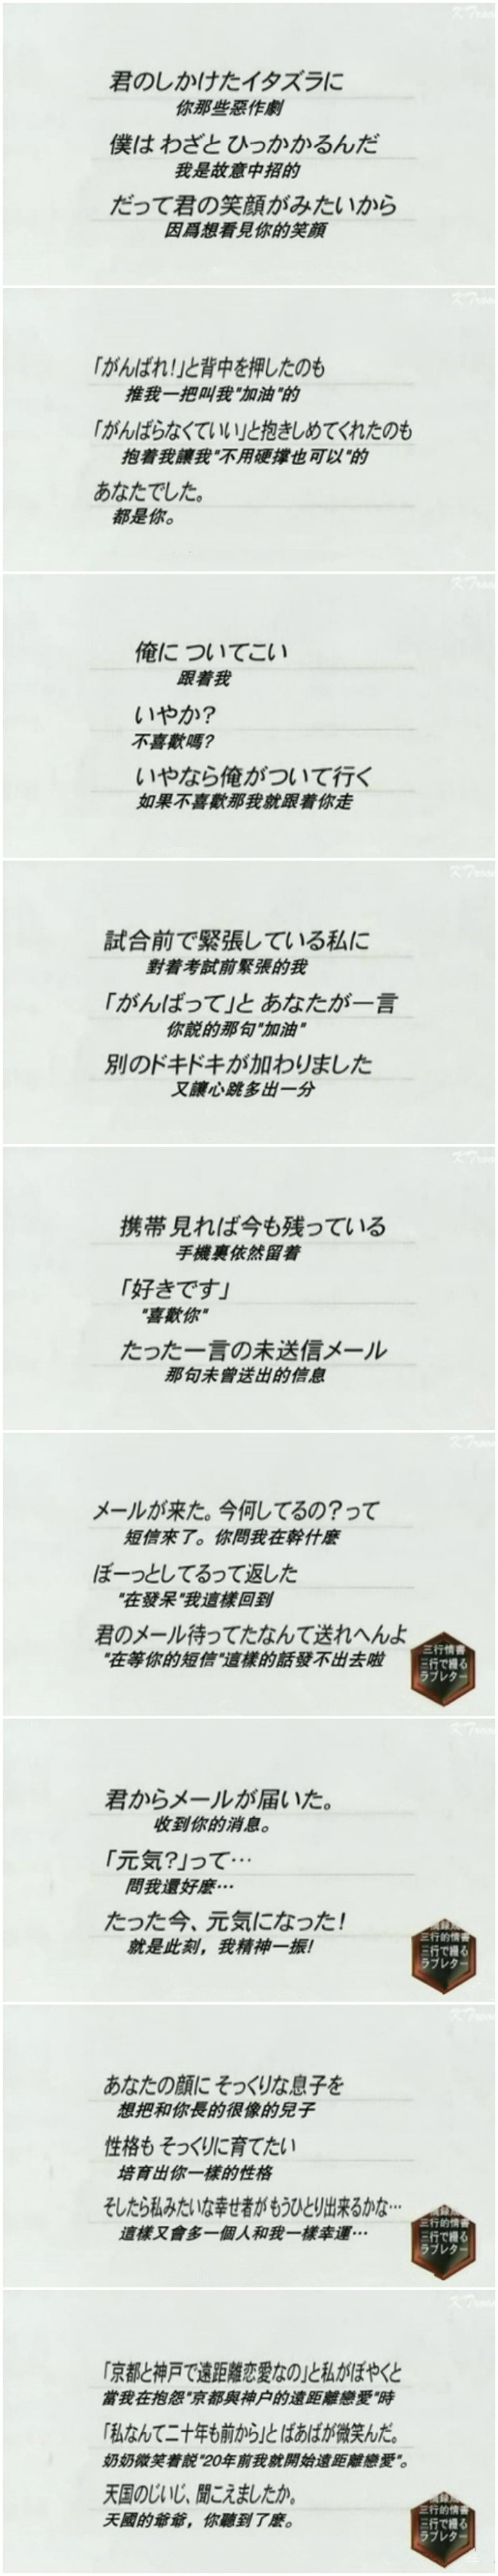 君のしかけたイタズラに
你那些惡作劇
僕は わざと ひっかかるんだ
我是故意中招的
だって君の笑顔がみたいから
因爲想看見你的笑顔
「がんばれ!」と背中を押したのも
推我一把叫我"加油"的
「がんばらなくていい」と抱きしめてくれたのも
抱着我讓我"不用硬撐也可以"的
あなたでした。
都是你。
俺に ついてこい
跟着我
いやか?
不喜歡嗎?
いやなら俺がついて行く
如果不喜歡那我就跟着你走
試合前で緊張している私に
對着考試前緊張的我
「がんばって」と あなたが一言
你説的那句"加油"
別のドキドキが加わりました
又讓心跳多出一分
携帯 見れば今も残っている
手機裏依然留着
「好きです」
"喜歡你"
たった一言の未送信メール
那句未曾送出的信息
メールが来た。今何してるの?って
短信來了。你問我在幹什麽
ぼーっとしてるって返した
"在發呆"我這樣回到
君のメール待ってたなんて送れへんよ
"在等你的短信"這樣的話發不出去啦
三行情書
三行で綴る
ラブレター
君からメールが届いた。
收到你的消息。
「元気?」って…
問我還好麽…
たった今、元気になった!
就是此刻，我精神一振!
三行的情書
三行で綴る
ラブレター
あなたの顔に そっくりな息子を
想把和你長的很像的兒子
性格も そっくりに育てたい
培育出你一樣的性格
そしたら私みたいな幸せ者が もうひとり出来るかな…
這樣又會多一個人和我一樣幸運…
三行的情書
三行で綴る
ラブレター
「京都と神戸で遠距離恋愛なの」と私がぼやくと
當我在抱怨"京都與神户的遠距離戀愛"時
「私なんて二十年も前から」と ばあばが微笑んだ。
奶奶微笑着説"20年前我就開始遠距離戀愛"。
天国のじいじ、聞こえましたか。
天國的爺爺，你聽到了麽。
三行的情書
三行で綴る
ラブレター